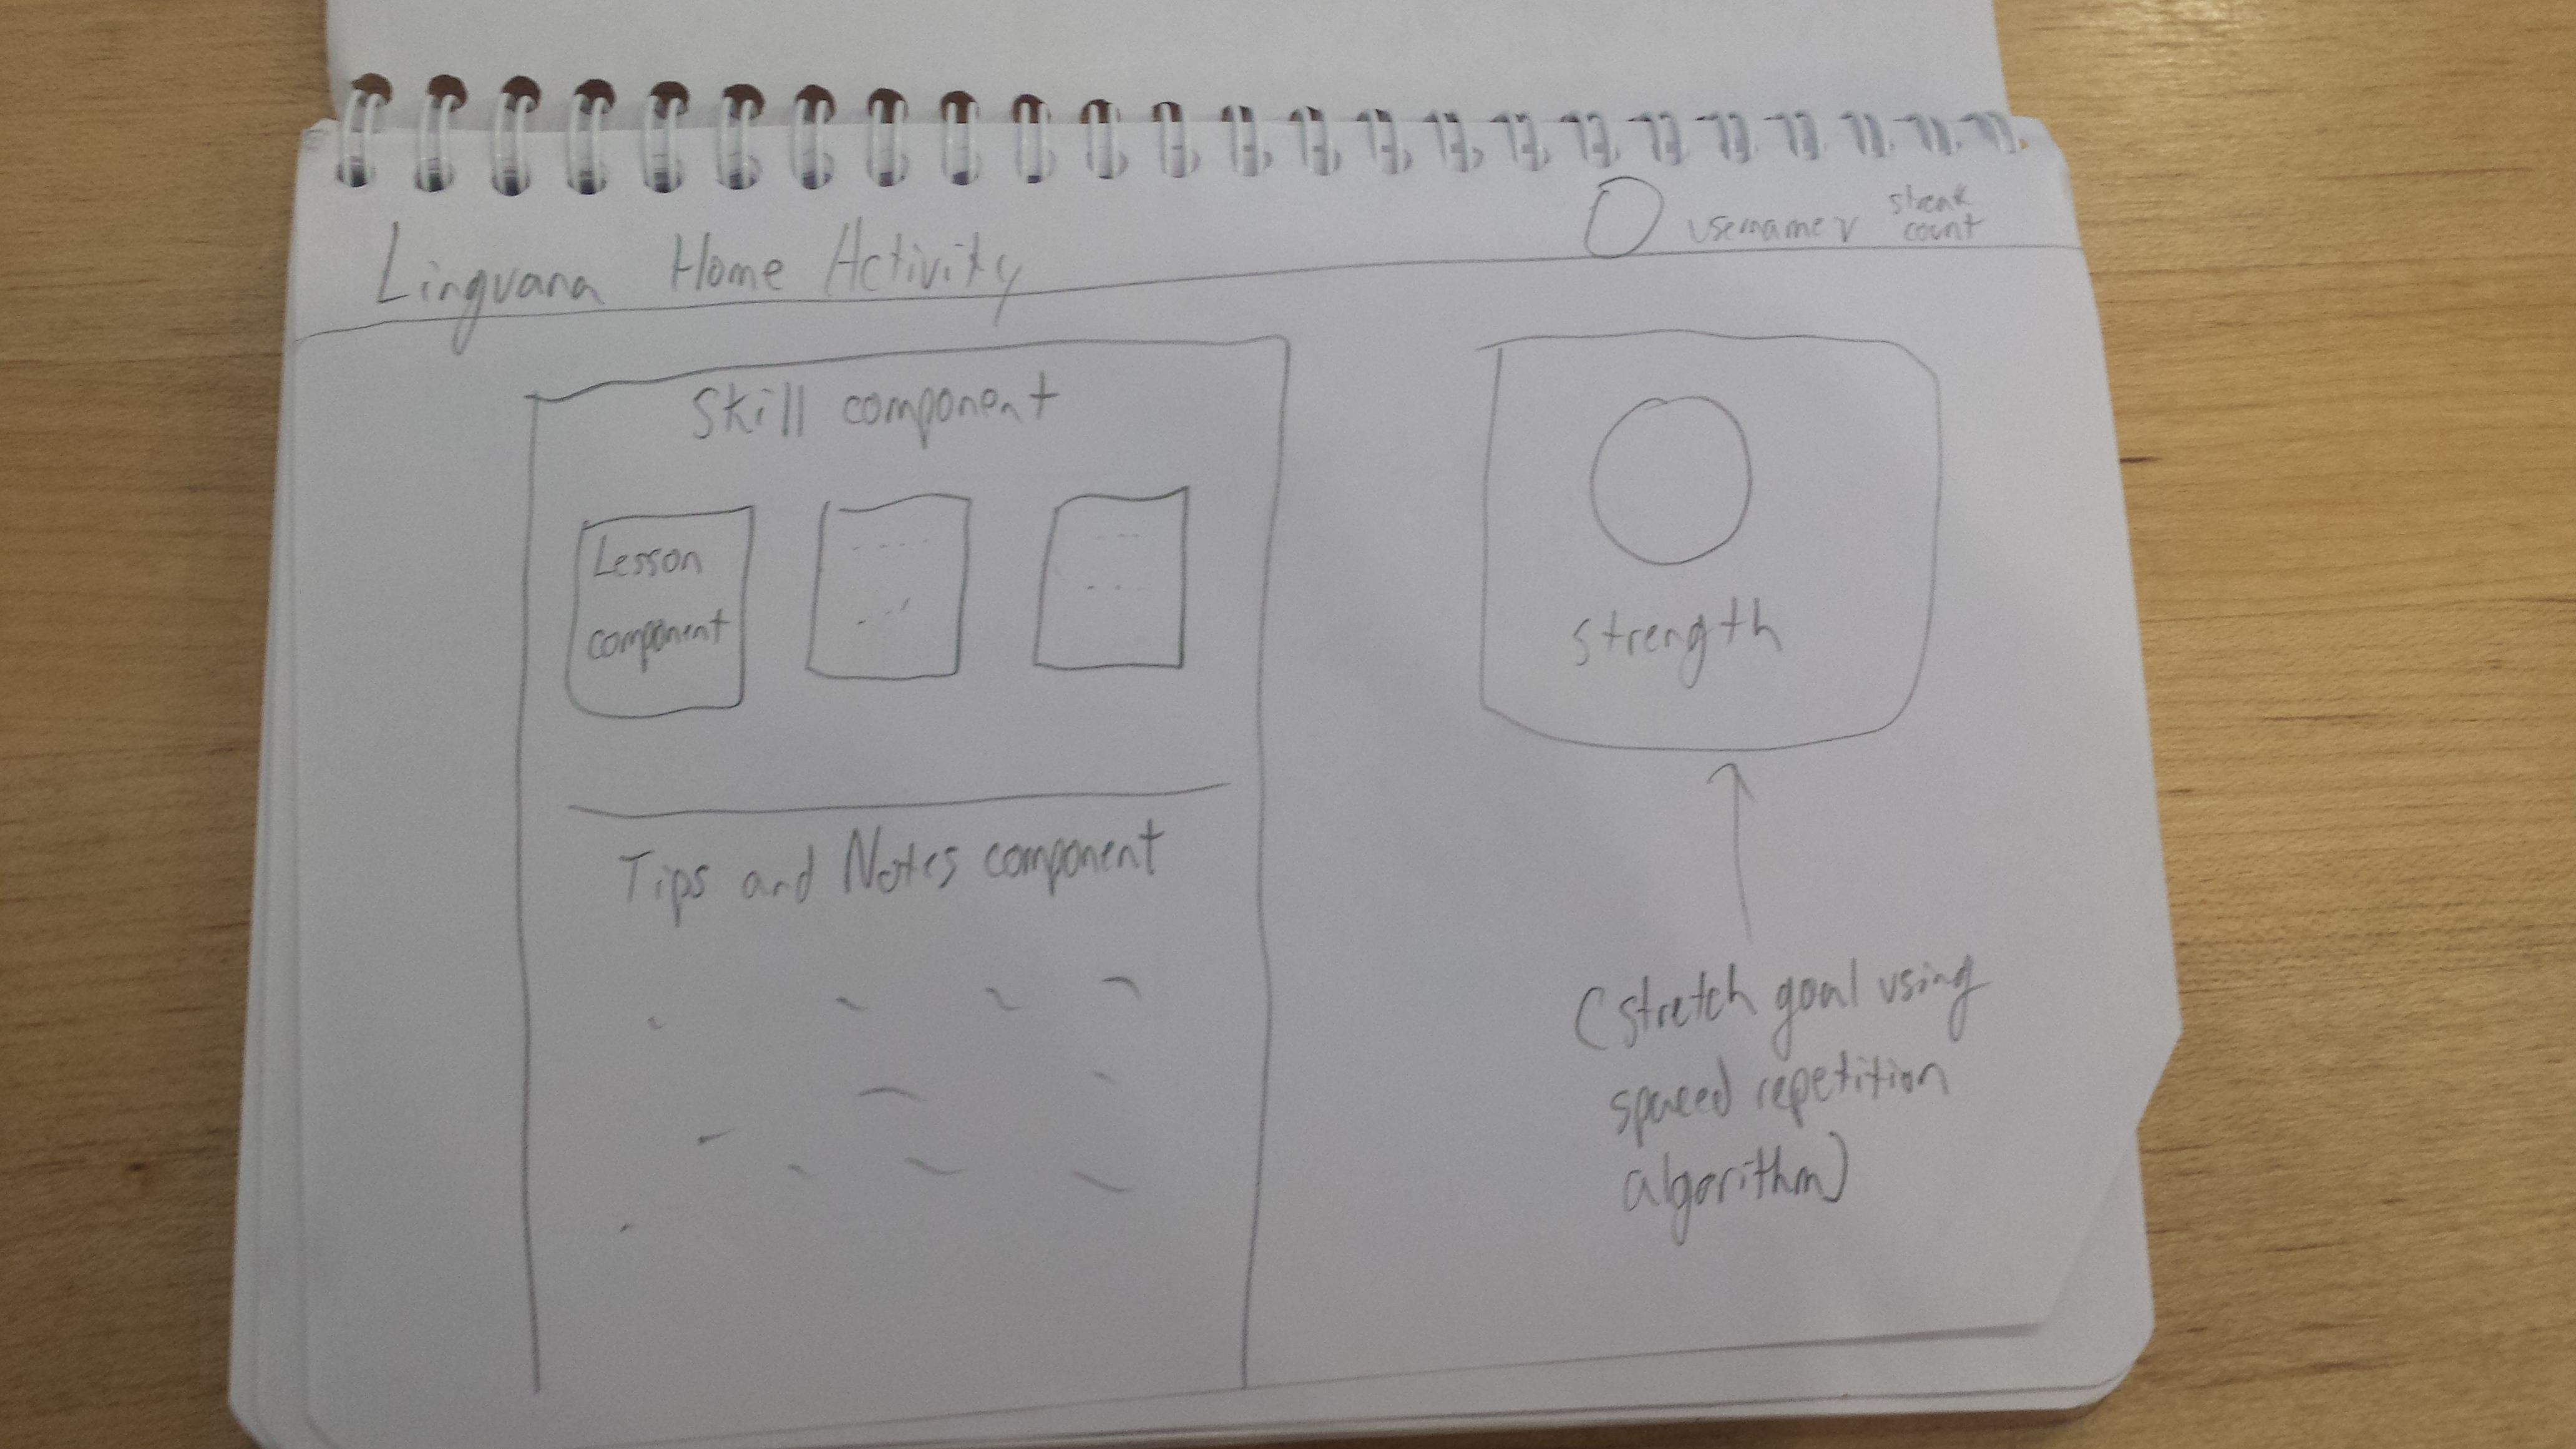 Linguana Home Activity
username v
streak
count
Skill component
Lesson
component
strength
Tips and Notes component
(stretch goal using
spaced repetition
algorithm)